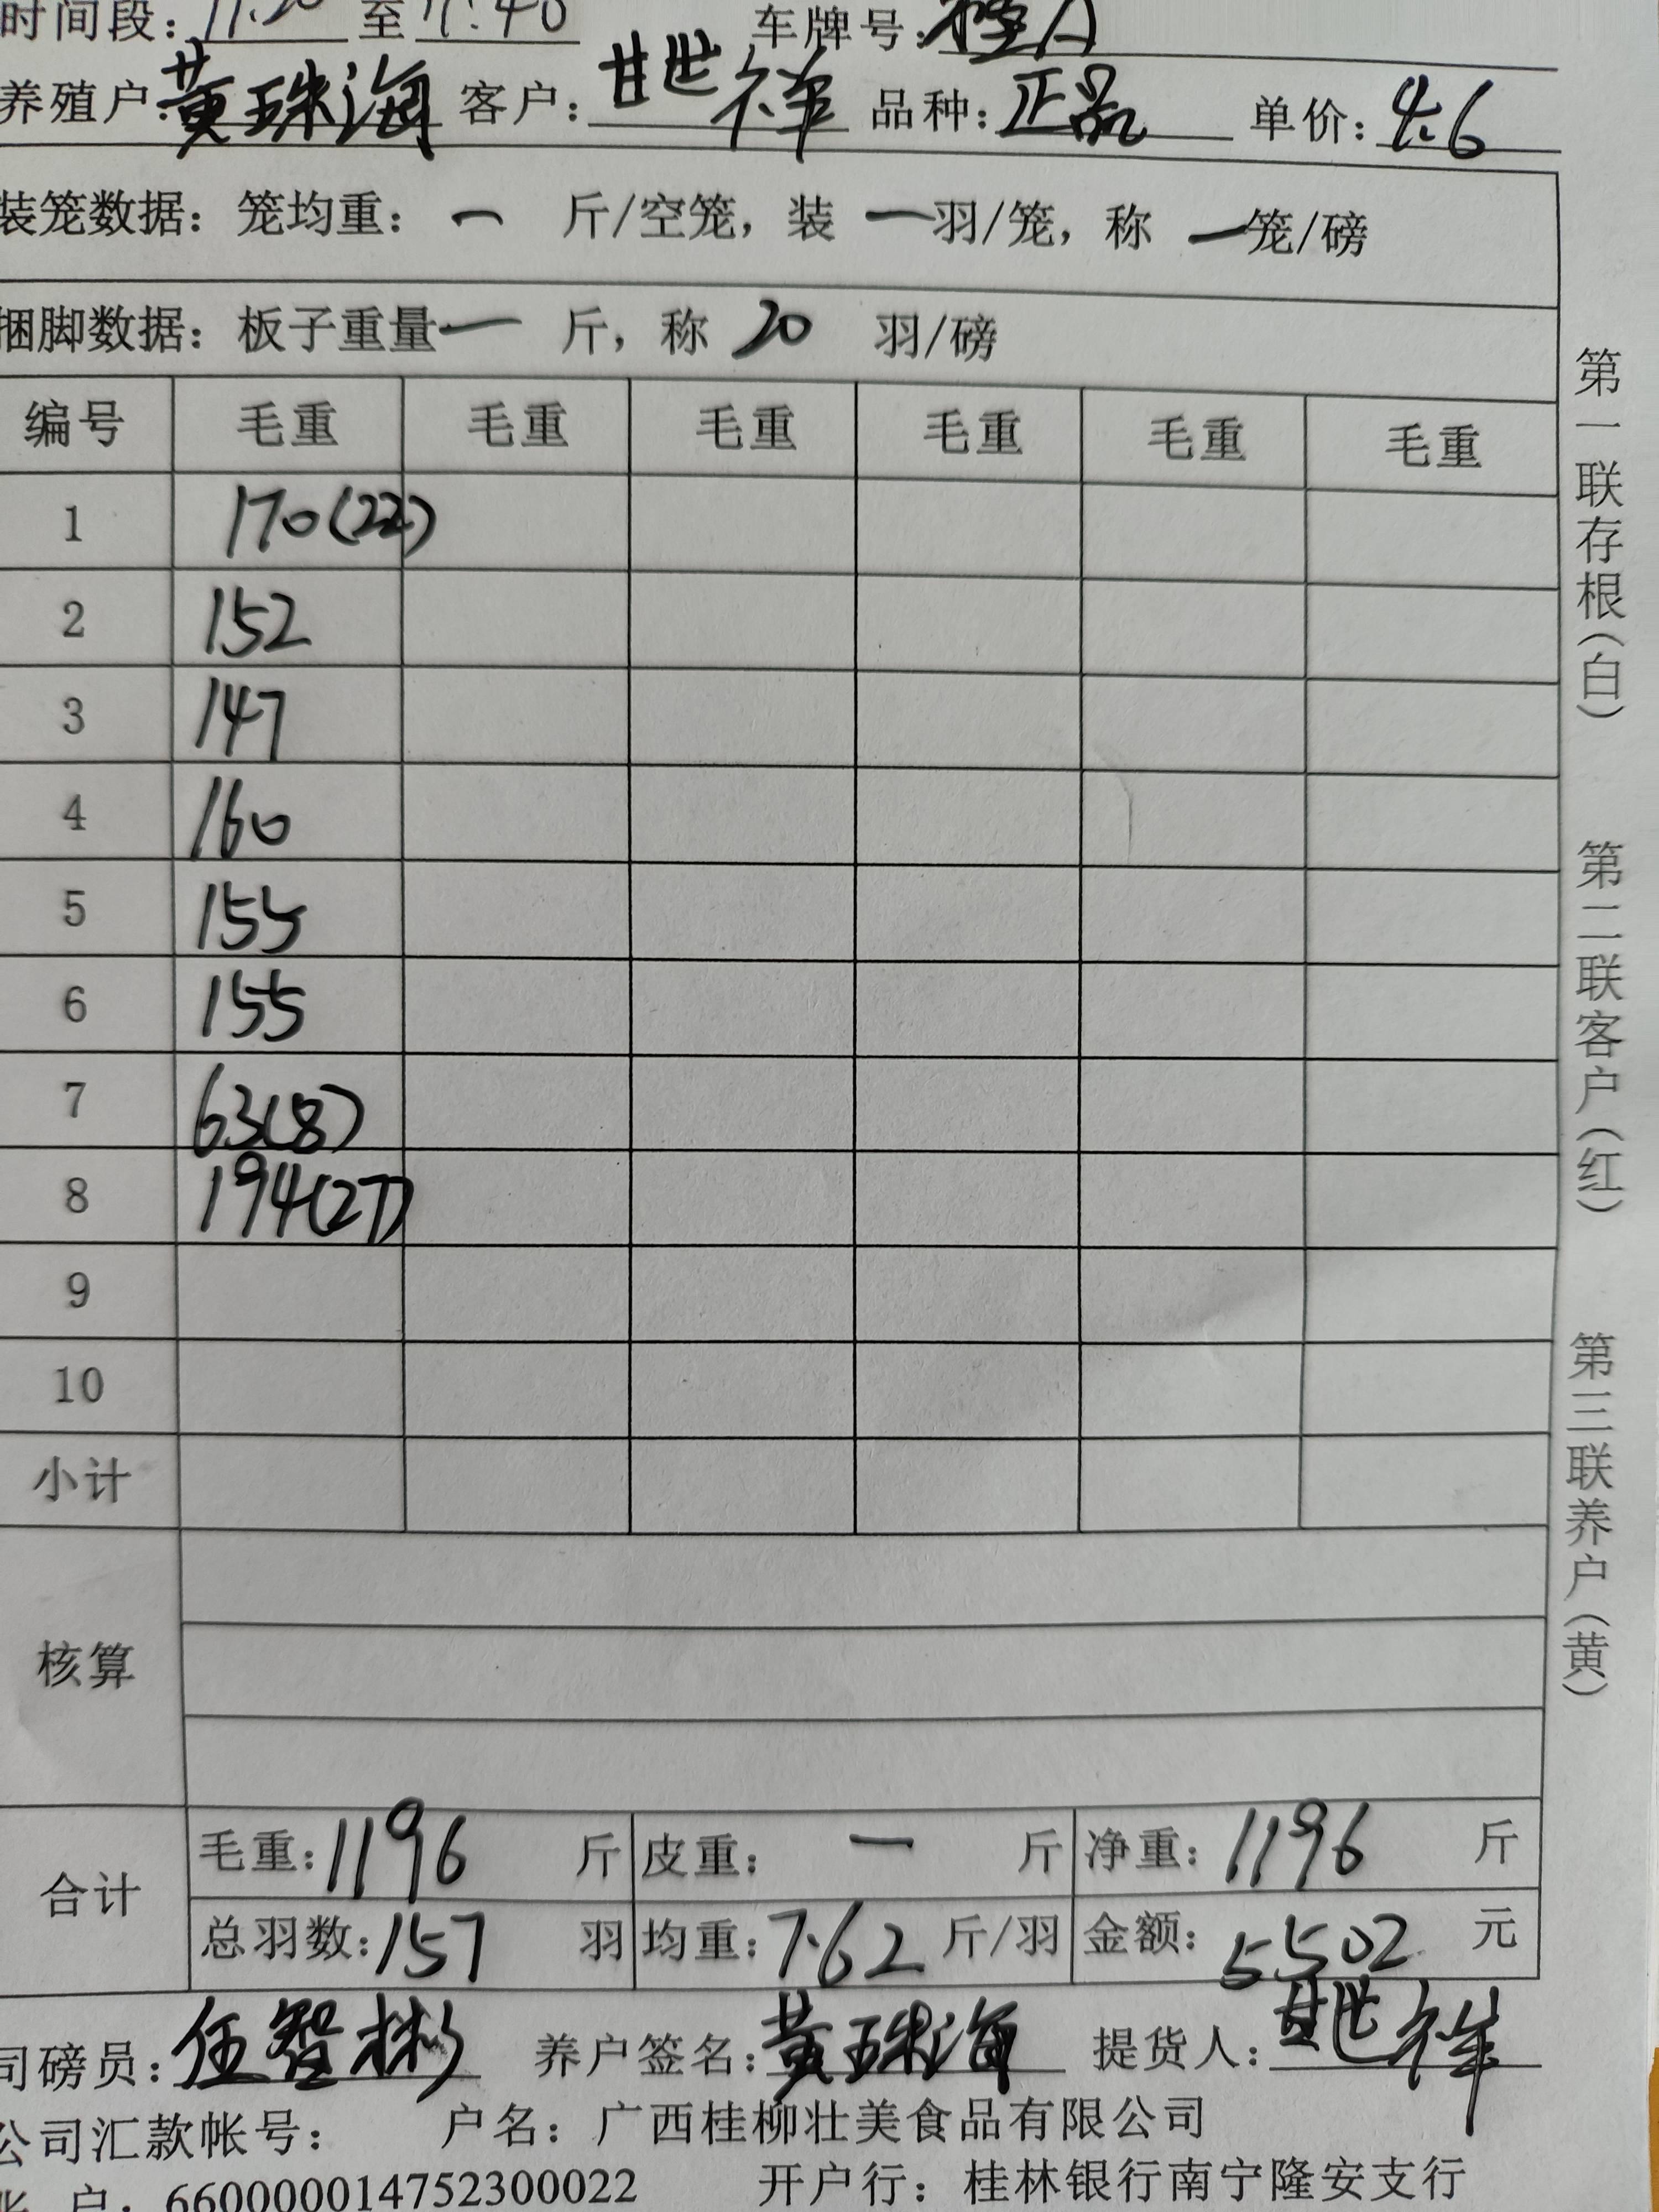 时间段：11:20 至 11:40 车牌号：桂A
养殖户：黄珠海 客户：甘世祥 品种：正品 单价：4.6
装笼数据：笼均重：一 斤/空笼，装 一 羽/笼，称 一 笼/磅
捆脚数据：板子重量 一 斤，称 20 羽/磅
编号 毛重 毛重 毛重 毛重 毛重 毛重
1 170(22)
2 152
3 147
4 160
5 155
6 155
7 63(8)
8 194(27)
9
10
小计
核算
合计
毛重：1196 斤 皮重：一 斤 净重：1196 斤
总羽数：157 羽 均重：7.62 斤/羽 金额：5502 元
司磅员：伍智彬 养户签名：黄珠海 提货人：甘世祥
公司汇款帐号： 户名：广西桂柳壮美食品有限公司
户：660000014752300022 开户行：桂林银行南宁隆安支行
第一联存根（白）
第二联客户（红）
第三联养户（黄）